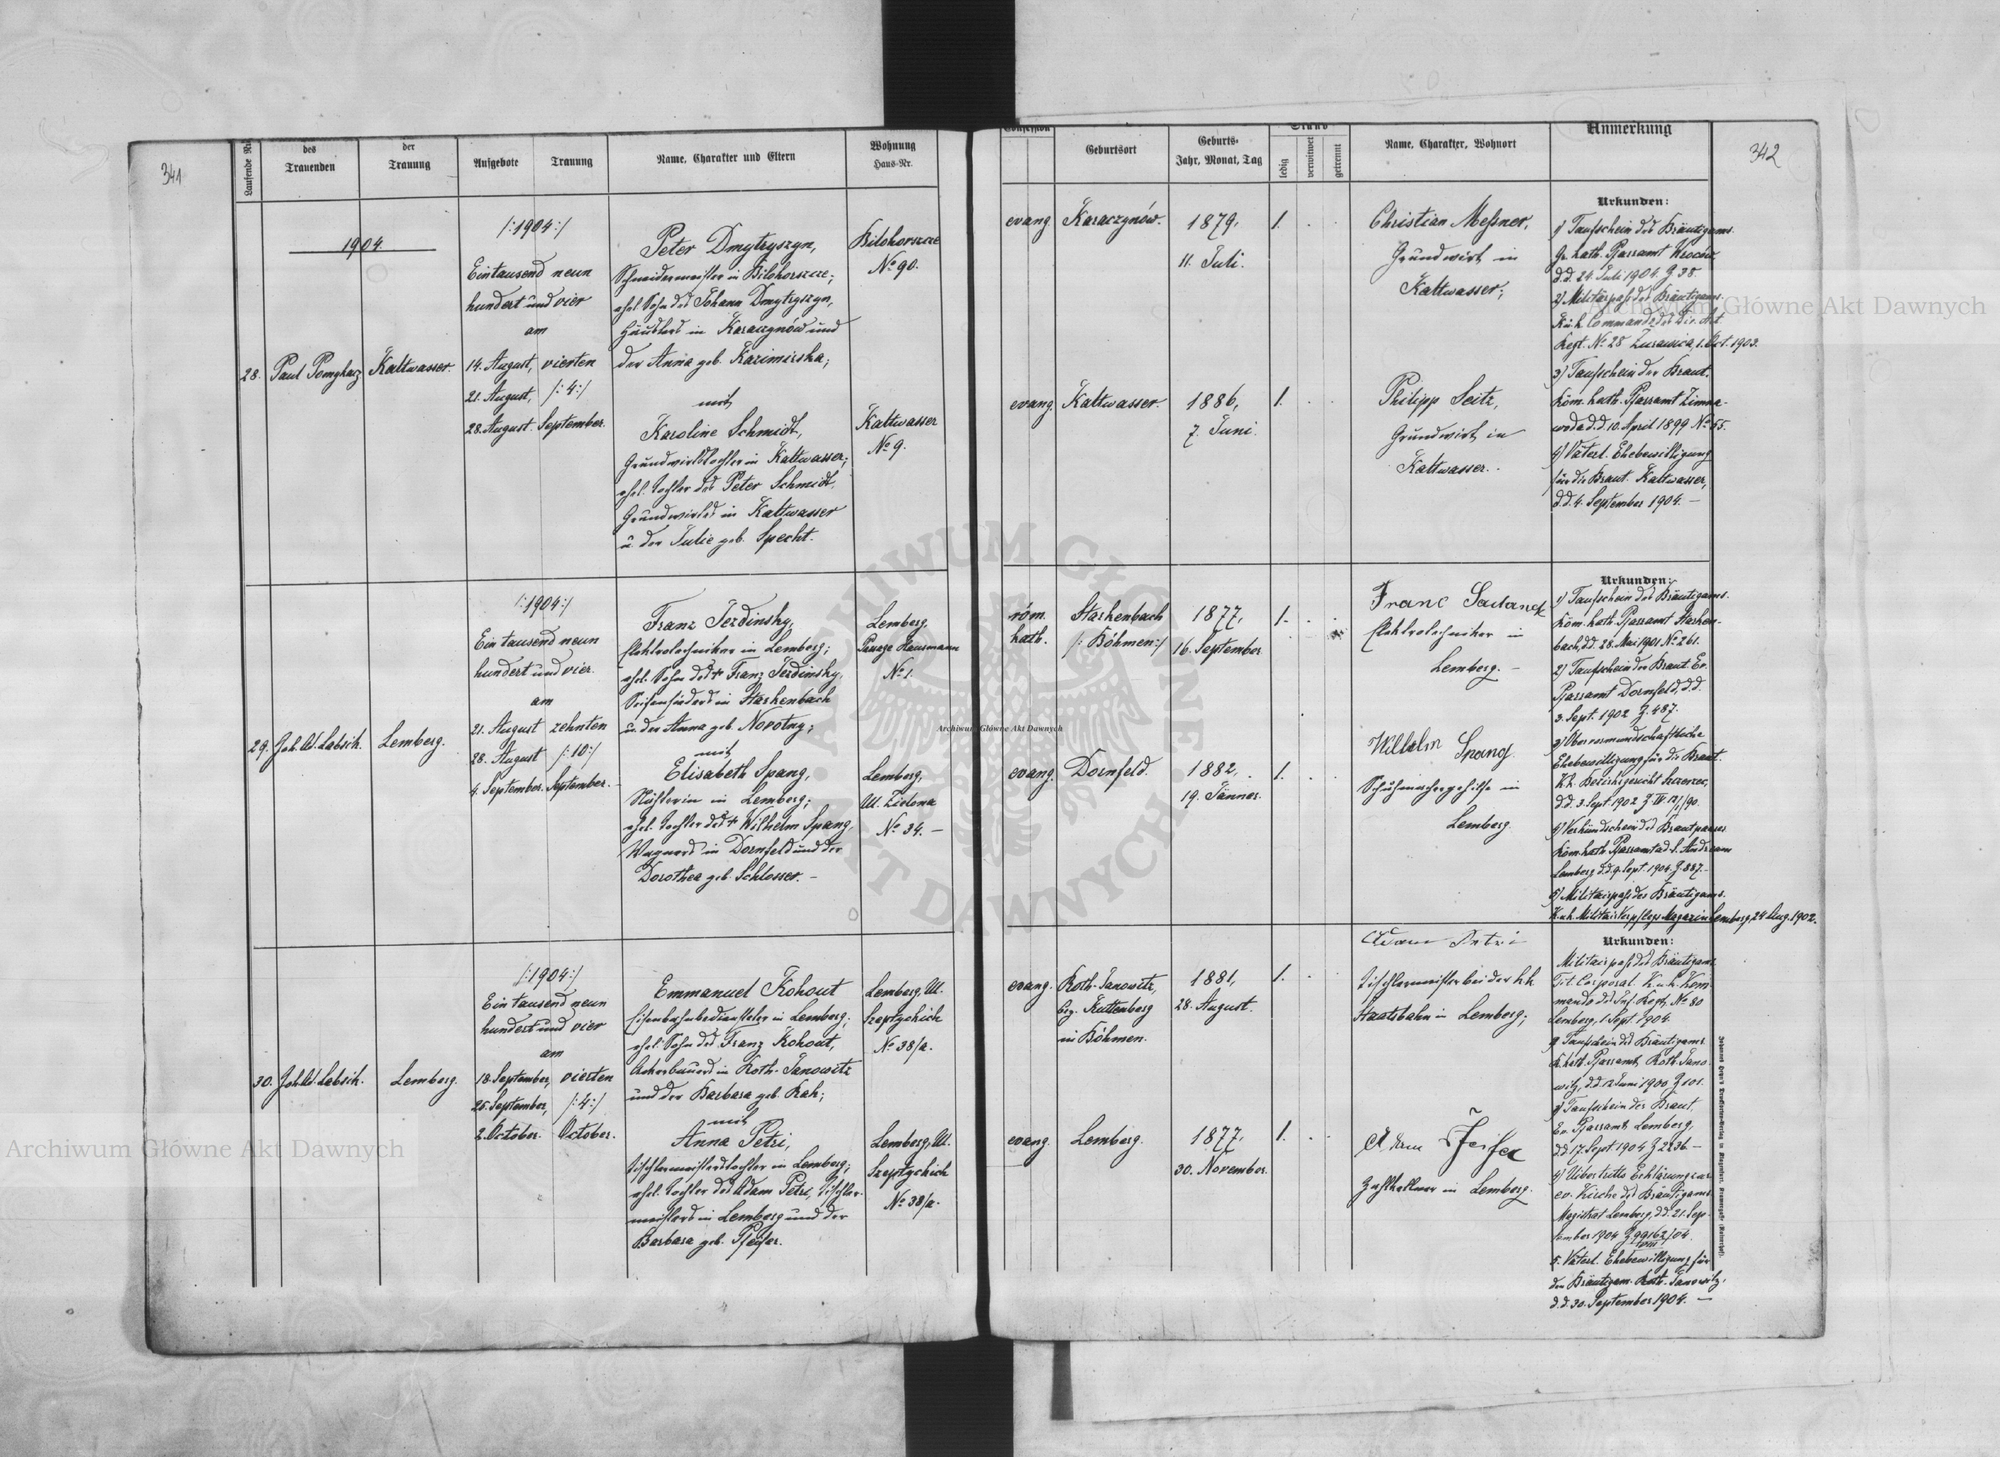 341
Laufende Nr.
des
Trauenden
der
Trauung
Aufgebote
Trauung
Name, Charakter und Eltern
Wohnung
Haus-Nr.
1904.
28.
Paul Pomykacz
Kaltwasser.
/:1904:/
Eintausend neun
hundert und vier
am
14. August, vierten
21. August, /:4:/
28. August. September.
Peter Dmytryszyn,
Schneidermeister in Bilohorszcze;
ehel. Sohn des Johann Dmytryszyn,
Häuslers in Karaczynów und
der Anna geb. Kazimirska;
mit
Karoline Schmidt,
Grundwirtstochter in Kaltwasser;
ehel. Tochter des Peter Schmidt,
Grundwirtes in Kaltwasser
u. der Julie geb. Specht.
Bilohorszcze
No 90.
Kaltwasser
No 9.
29.
Joh. Ad. Labsik.
Lemberg.
/:1904:/
Ein tausend neun
hundert und vier.
am
21. August zehnten
28. August /:10:/
4. September. September.
Franz Jezdinsky,
Elektrotechniker in Lemberg;
ehel. Sohn des + Franz Jezdinsky,
Seifensieders in Starkenbach
u. der Anna geb. Novotny;
mit
Elisabeth Spang,
Näherin in Lemberg;
ehel. Tochter des + Wilhelm Spang,
Wagners in Dornfeld und der
Dorothea geb. Schlosser. –
Lemberg,
Passage Hausmann
No 1.
Lemberg,
Ul. Zielona
No 34. –
30.
Joh. Ad. Labsik.
Lemberg.
/:1904:/
Ein tausend neun
hundert und vier
am
18. September, vierten
25. September, /:4:/
2. October. October.
Emmanuel Kohout
Eisenbahnbediensteter in Lemberg;
ehel. Sohn des Franz Kohout,
Ackerbauers in Roth-Janowitz
und der Barbara geb. Kah;
mit
Anna Petri,
Tischlermeisterstochter in Lemberg;
ehel. Tochter des Adam Petri, Tischler-
meisters in Lemberg und der
Barbara geb. Pfeifer.
Lemberg, Ul.
Szeptyckich
No 38/a.
Lemberg, Ul.
Szeptyckich
No 38/a.
342
Confession
Geburtsort
Geburts-
Jahr, Monat, Tag
Stand
ledig
verwitwet
getrennt
Name, Charakter, Wohnort
Anmerkung
evang.
Karaczynów.
1879,
11. Juli.
1.
Christian Meßner,
Grundwirt in
Kaltwasser;
evang.
Kaltwasser.
1886,
7. Juni.
1.
Philipp Seitz,
Grundwirt in
Kaltwasser.
Urkunden:
1) Taufschein des Bräutigams.
Gr. kath. Pfarramt Wroców
d.d. 24. Juli 1904. Z 38.
2) Militärpaß des Bräutigams.
K. u. k. Commando des Div. Art.
Regt. No 28 Zurawica, 1. Oct. 1903.
3) Taufschein der Braut.
Röm. kath. Pfarramt Zimna-
woda d.d. 10. April 1899 No 55.
4) Väterl. Ehebewilligung
für die Braut. Kaltwasser,
d.d. 4. September 1904. –
röm.
kath.
Starkenbach
/: Böhmen:/
1877,
16. September
1.
Elektrotechniker in
Lemberg. –
evang.
Dornfeld.
1882,
19. Jänner.
1.
Wilhelm Spang
Schuhmachergehilfe in
Lemberg
Urkunden:
1) Taufschein des Bräutigams.
Röm. kath. Pfarramt Starken-
bach, d.d. 28. Mai 1901 No 261.
2) Taufschein der Braut Ev.
Pfarramt Dornfeld, d.d.
3. Sept. 1902 Z. 487.
3) Obervormundschaftliche
Ehebewilligung für die Braut.
K.k. Bezirksgericht Szczerzec,
d.d. 3. Sept. 1902
4) Verkündschein des Brautpaares
Röm. kath. Pfarramt ad S. Andream
Lemberg d.d. 9. Sept. 1904. Z. 887. –
5) Militairpaß des Bräutigams.
K.u.k. Militair Verpflegs Magazin Lemberg, 24 Aug. 1902.
evang.
Roth-Janowitz,
bez. Kuttenberg
in Böhmen.
1881,
28. August.
1.
Adam Petri
Tischlermeister bei der k.k.
Staatsbahn in Lemberg;
evang.
Lemberg.
1877,
30. November.
1.
Adam Pfeifer
Zahlkellner in Lemberg.
Urkunden:
Militairpaß des Bräutigams
Tit. Corporal. K. u. k. Kom-
mando des Inf. Regts. No 80
Lemberg, 1. Sept. 1904.
2) Taufschein des Bräutigams
R. kath. Pfarramt, Roth-Jano-
witz, d.d. 12. Juni 1900 Z 101.
3) Taufschein der Braut.
Ev. Pfarramt Lemberg,
d.d. 17. Sept. 1904 Z 2236. –
4) Uibertritts Erklärung zur
ev. Kirche des Bräutigams
Magistrat Lemberg, d.d. 21. Sep-
tember 1904 Z 99162/04.
VIII
5. Väterl. Ehebewilligung für
den Bräutigam. Roth-Janowitz,
d.d. 30. September 1904. –
Archiwum Główne Akt Dawnych
Archiwum Główne Akt Dawnych
Archiwum Główne Akt Dawnych
ARCHIWUM GŁÓWNE AKT DAWNYCH